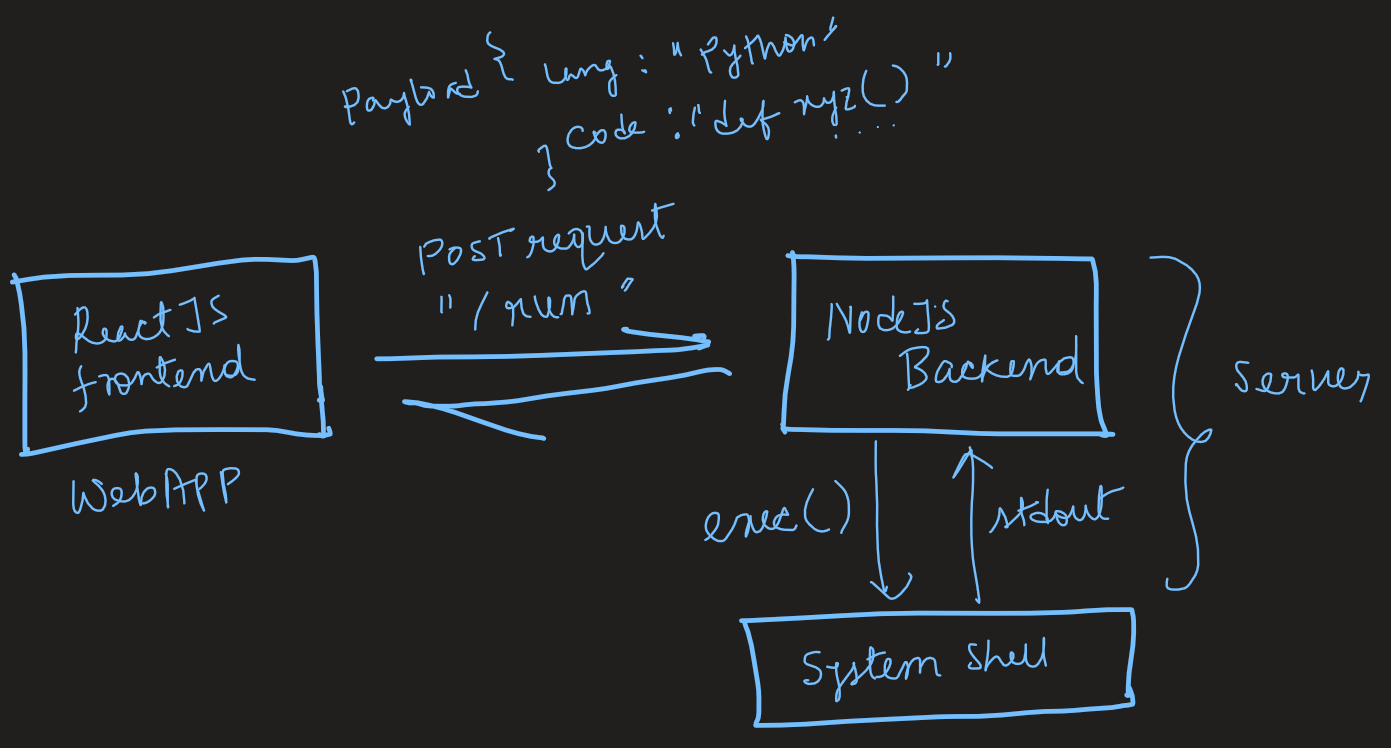 Payload { lang : "Python"
code : "def xyz() "
. . . .
}
POST request
"/run"
ReactJS
frontend
WebAPP
NodeJS
Backend
Server
exec()
stdout
System Shell